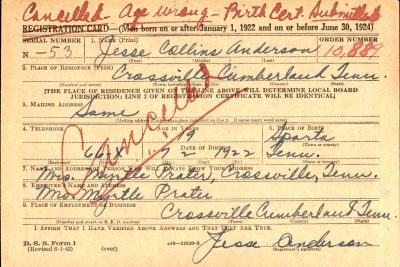 Cancelled - Age Wrong - Birth Cert. Submitted
REGISTRATION CARD—(Men born on or after January 1, 1922 and on or before June 30, 1924)
SERIAL NUMBER 1. NAME (Print) ORDER NUMBER
N-53 Jesse Collins Anderson 10,889
(First) (Middle) (Last)
2. PLACE OF RESIDENCE (Print)
Crossville Cumberland Tenn.
(Number and street) (Town, township, village, or city) (County) (State)
[THE PLACE OF RESIDENCE GIVEN ON THE LINE ABOVE WILL DETERMINE LOCAL BOARD
JURISDICTION; LINE 2 OF REGISTRATION CERTIFICATE WILL BE IDENTICAL]
3. MAILING ADDRESS
Same
Cancelled
4. TELEPHONE 5. AGE IN YEARS 6. PLACE OF BIRTH
19 Sparta
DATE OF BIRTH
66X1 2 1922 Tenn.
7. NAME AND ADDRESS OF PERSON WHO WILL ALWAYS KNOW YOUR ADDRESS
Mrs. Myrtle Prater, Crossville, Tenn.
8. EMPLOYER'S NAME AND ADDRESS
Mrs. Myrtle Prater
9. PLACE OF EMPLOYMENT OR BUSINESS
Crossville Cumberland Tenn.
(Number and street or R. F. D. number) (Town) (County) (State)
I AFFIRM THAT I HAVE VERIFIED ABOVE ANSWERS AND THAT THEY ARE TRUE.
D. S. S. Form 1
(Revised 6-9-42) (over)
Jesse Anderson